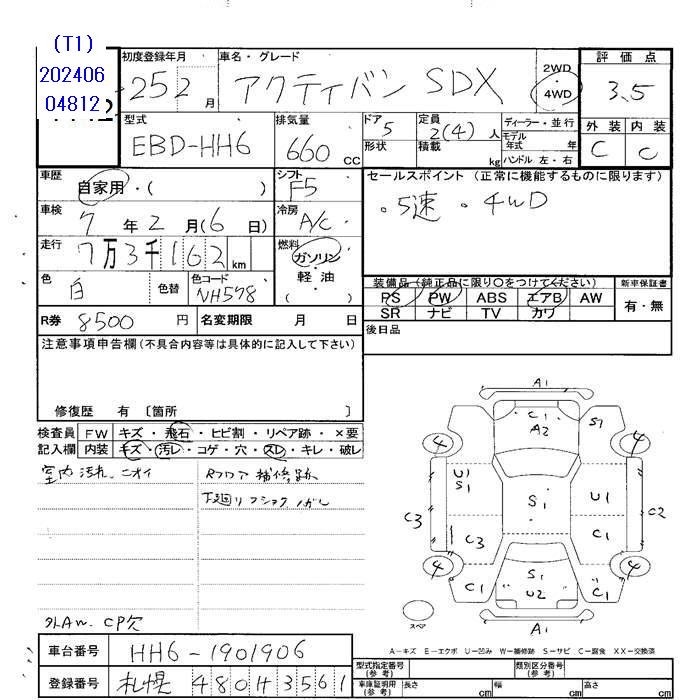 (T1)
202406
04812
初度登録年月
25 2 月
車名・グレード
アクティバン SDX
2WD
・
4WD
評価点
3.5
型式
EBD-HH6
排気量
660 cc
ドア 5
形状
定員 2(4) 人
積載 kg
ディーラー・並行
モデル年式 年
ハンドル 左・右
外装 内装
C C
車歴
自家用・( )
シフト
F5
セールスポイント (正常に機能するものに限ります)
。5速 。4WD
車検
7 年 2 月 (6 日)
冷房
A/C
走行
7万3千162 km
燃料
ガソリン
・
軽油
( )
色
白
色替
色コード
NH578
装備品 (純正品に限り○をつけてください)
PS PW ABS エアB AW
SR ナビ TV カワ
新車保証書
有・無
R券 8500 円
名変期限 月 日
後日品
注意事項申告欄(不具合内容等は具体的に記入して下さい)
修復歴 有 〔箇所 〕
検査員 FW キズ・飛石・ヒビ割・リペア跡・×要
記入欄 内装 キズ・汚レ・コゲ・穴・スレ・キレ・破レ
室内汚れ、ニオイ
Rフロア補修跡
外AW、CP欠
A1
C1
A2
S1
4
4
U1
S1
S1
U1
C3
C3
C1
C2
4
4
C1
S1
U2
C1
A1
スペア
A−キズ E−エクボ U−凹み W−補修跡 S−サビ C−腐食 XX−交換済
車台番号 HH6-1901906
登録番号 札幌 480 ロ 3561
型式指定番号(参考)
類別区分番号(参考)
車庫証明用(参考) 長さ cm 幅 cm 高さ cm